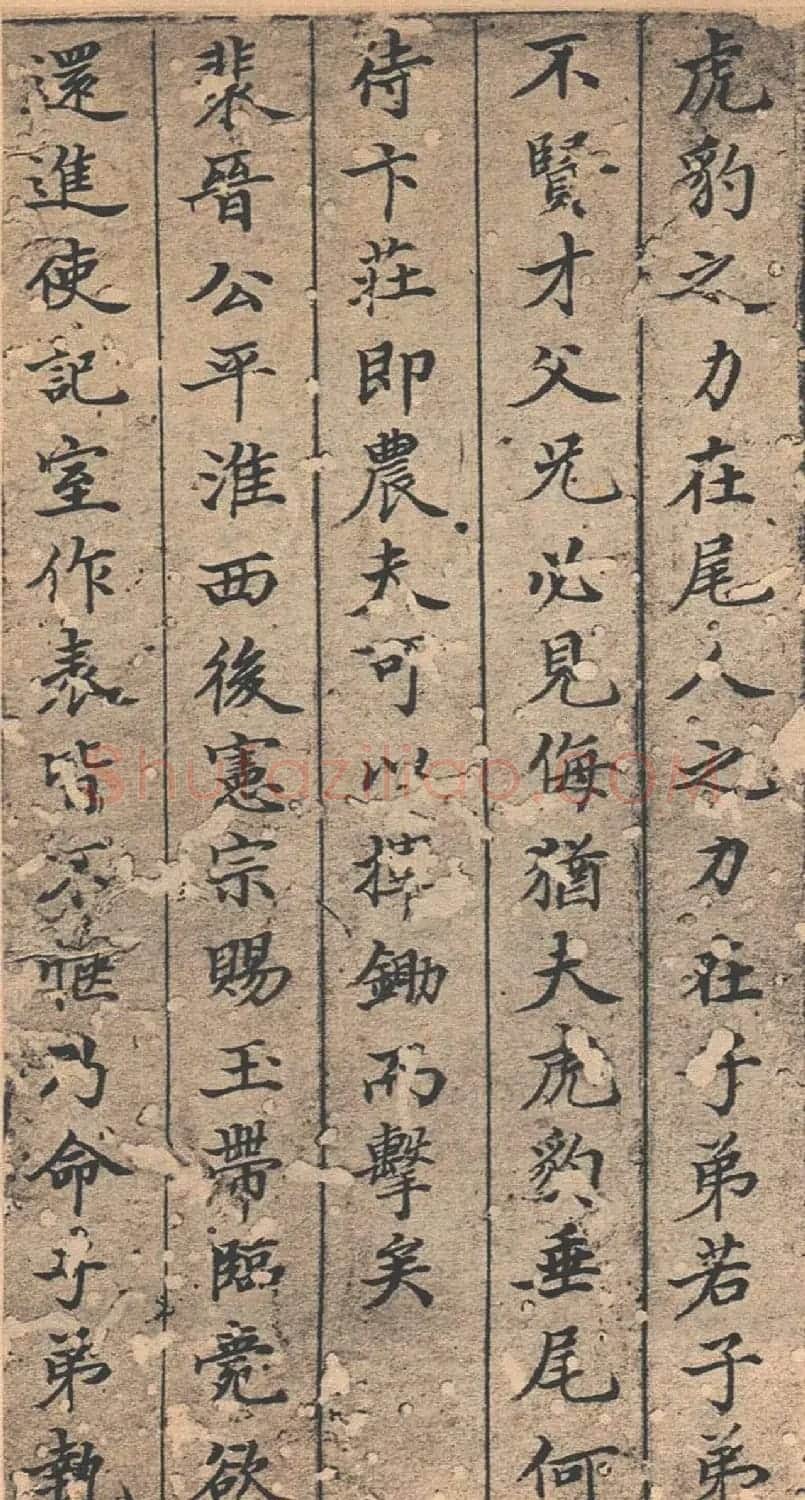 虎豹之力在尾人之力在子弟若子弟
不賢才父兄必見侮猶夫虎豹垂尾何
待卞莊即農夫可以揮鋤而擊矣
裴晉公平淮西後憲宗賜玉帶臨薨欲
還進使記室作表皆不愜乃命子弟執
Shufaziliao.COM